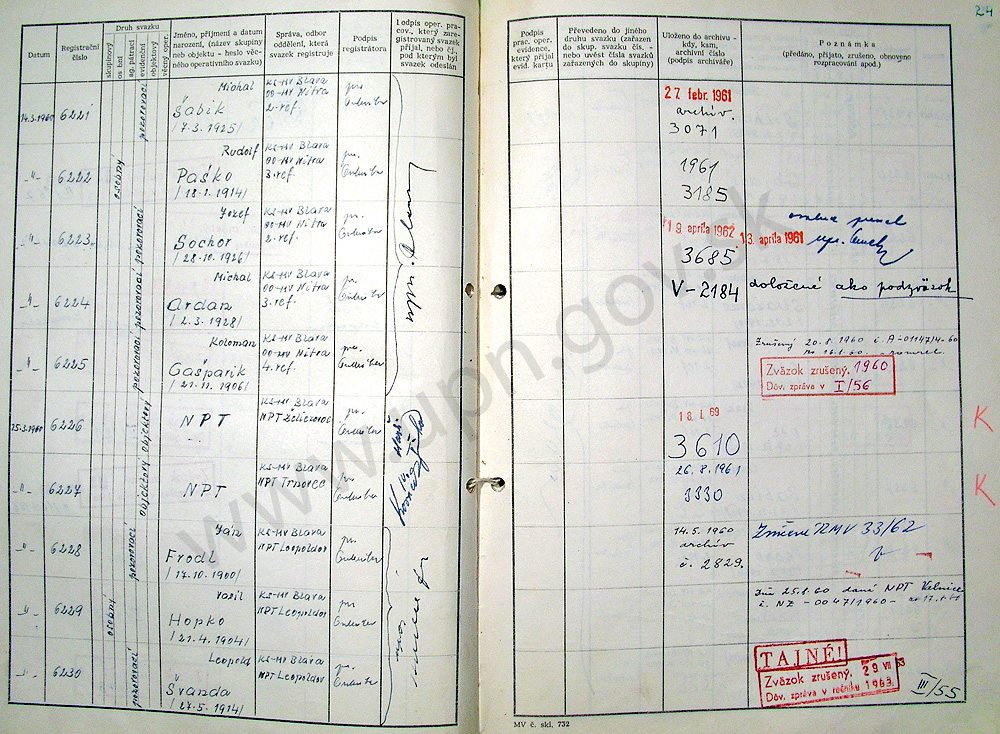 24
Datum
Registrační číslo
Druh svazku
skupinový
osobní
ag. pátrací
evidenční
objektový
věcný oper.
Jméno, příjmení a datum
narození, (název skupiny
neb objektu - heslo věc-
ného operativního svazku)
Správa, odbor
oddělení, která
svazek registruje
Podpis
registrátora
Podpis oper. pra-
cov., který zare-
gistrovaný svazek
přijal, nebo čj.
pod kterým byl
svazek odeslán
Podpis
prac. oper.
evidence,
který přijal
evid. kartu
Převedeno do jiného
druhu svazku (zařazen
do skup. svazku čís. -
nebo uvést čísla svazků
zařazených do skupiny)
Uloženo do archivu -
kdy, kam,
archivní číslo
(podpis archiváře)
Poznámka
(předáno, přijato, zrušeno, obnoveno
rozpracování apod.)
14.3.1960 6221 pozorovací
Michal
Šabik
/7.3.1925/
KS-MV Blava
OO-MV Nitra
2. ref.
27 febr. 1961
archív.
3071
-"- 6222 osobný
Rudolf
Paško
/18.1.1914/
KS-MV Blava
OO-MV Nitra
3. ref.
1961
3185
-"- 6223 pozorovací
Jozef
Sochor
/28.10.1926/
KS-MV Blava
OO-MV Nitra
2. ref.
19 apríla 1962
13. apríla 1961
3685
-"- 6224 pozorovací
Michal
Ardan
/2.3.1928/
KS-MV Blava
OO-MV Nitra
3. ref.
V-2184
doložené ako podzväzok
-"- 6225 pozorovací
Koloman
Gašparik
/21.11.1906/
KS-MV Blava
OO-MV Nitra
4. ref.
Zrušený 20.8.1960 č. A-01147/4-60
Zväzok zrušený. 1960
Dôv. zpráva v I/56
25.3.1960 6226 objektový
NPT
KS-MV Blava
NPT Želiezovce
18. I. 69
3610
K
-"- 6227 objektový
NPT
KS-MV Blava
26.8.1961
3330
K
-"- 6228 pozorovací
Ján
Frodl
/17.10.1900/
KS-MV Blava
NPT Leopoldov
14.5.1960
archív
č. 2829.
Zničené RMV 33/62
-"- 6229 osobný
Vasil
Hopko
/21.4.1904/
KS-MV Blava
NPT Leopoldov
Dňa 25.1.60 daná NPT Valdice
č. NZ-0047/1960-
-"- 6230 pozorovací
Leopold
Švanda
/27.5.1914/
KS-MV Blava
NPT Leopoldov
TAJNÉ!
Zväzok zrušený. 29 VII 63
Dôv. zpráva v ročníku 1963.
III/55
MV č. skl. 732
www.upn.gov.sk